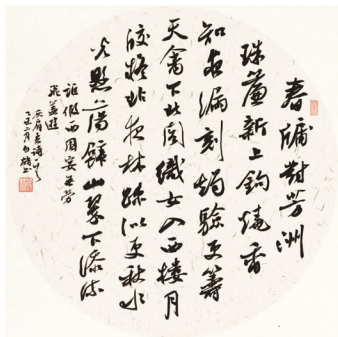 春牖對芳洲
珠簾新上鉤燒香
知夜漏刻燭驗更籌
天禽下北閣織女入西樓月
皎疑非夜林疏似更秋水
光懸蕩壁山翠下添流
詎假西園宴無勞
飛蓋遊
庾肩吾詩
二月